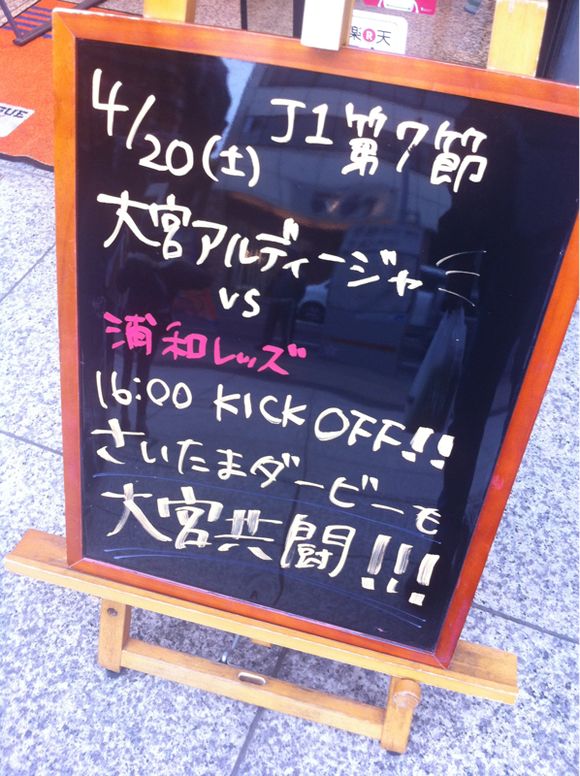 楽R天
GUE
4/20(土) J1第7節
大宮アルディージャ
vs
浦和レッズ
16:00 KICK OFF!!
さいたまダービーも
大宮共闘!!!